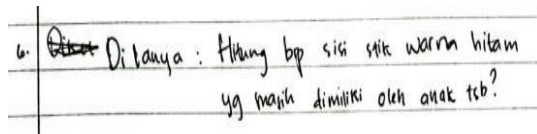 6. Ditanya : Hitung bp sisi stik warna hitam
yg masih dimiliki oleh anak tsb?